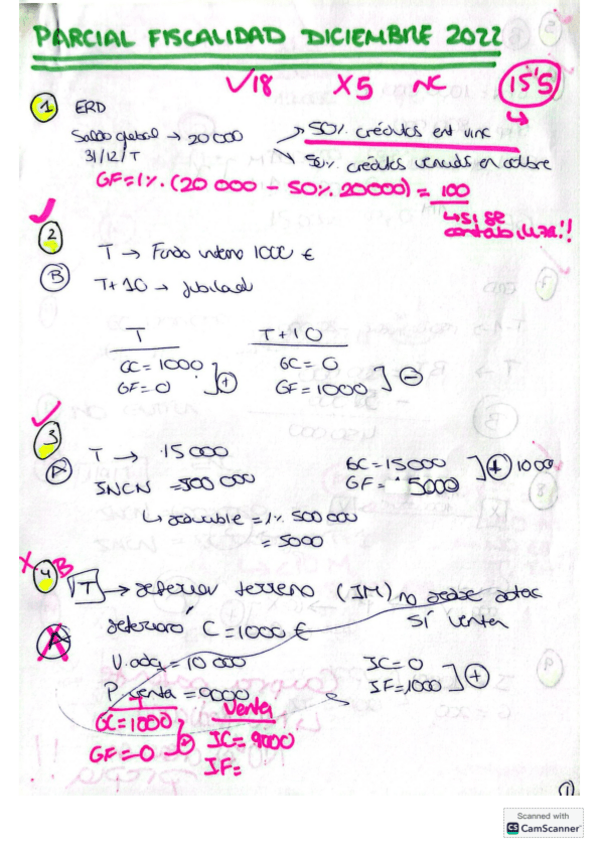 PARCIAL FISCALIDAD DICIEMBRE 2022
✓18 X5 NC 15'5
1 ERD
Saldo global → 20000 → 50% créditos ent vinc
31/12/T → 50% créditos vencids en
GF = 1% · (20 000 - 50% 20000) = 100
↳ SI SE
contabiliza!!
2
T → Fondo interno 1000 €
B T+10 → jubilad
T T+10
GC = 1000 GC = 0
GF = 0 + GF = 1000 -
3
T → 15 000
A GC = 15000 + 1000
INCN = 500 000 GF = 5000
↳ deducible = 1% 500 000
= 5000
X 4 B
T → deterior terreno (IM) no
A deterioro C = 1000 € SÍ venta
V. adq = 10 000 IC = 0
P. venta = 9000 IF = 1000 +
T Venta
GC = 1000 IC = 9000
GF = 0 + IF =
1
Scanned with
CS CamScanner